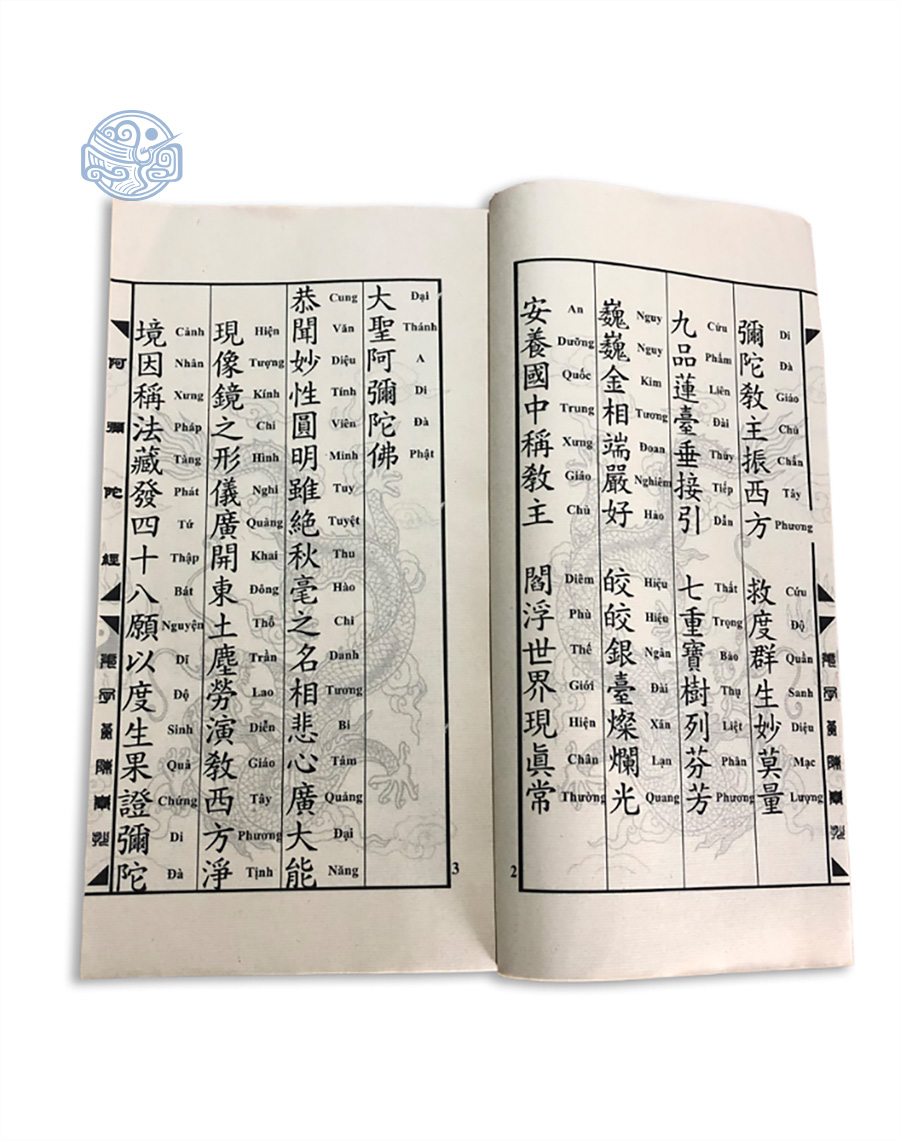 彌陀教主振西方 救度群生妙莫量
Di Đà Giáo Chủ Chấn Tây Phương Cứu Độ Quần Sanh Diệu Mạc Lượng
九品蓮臺垂接引 七重寶樹列芬芳
Cửu Phẩm Liên Đài Thùy Tiếp Dẫn Thất Trọng Bảo Thụ Liệt Phân Phương
巍巍金相端嚴好 皎皎銀臺燦爛光
Nguy Nguy Kim Tương Đoan Nghiêm Hảo Hiệu Hiệu Ngân Đài Xán Lạn Quang
安養國中稱教主 閻浮世界現眞常
An Dưỡng Quốc Trung Xưng Giáo Chủ Diêm Phù Thế Giới Hiện Chân Thường
2
大聖阿彌陀佛
Đại Thánh A Di Đà Phật
恭聞妙性圓明雖絕秋毫之名相悲心廣大能
Cung Văn Diệu Tính Viên Minh Tuy Tuyệt Thu Hào Chi Danh Tương Bi Tâm Quảng Đại Năng
現像鏡之形儀廣開東土塵勞演教西方淨
Hiện Tượng Kính Chi Hình Nghi Quảng Khai Đông Thổ Trần Lao Diễn Giáo Tây Phương Tịnh
境因稱法藏發四十八願以度生果證彌陀
Cảnh Nhân Xưng Pháp Tàng Phát Tứ Thập Bát Nguyện Dĩ Độ Sinh Quả Chứng Di Đà
阿彌陀經
3